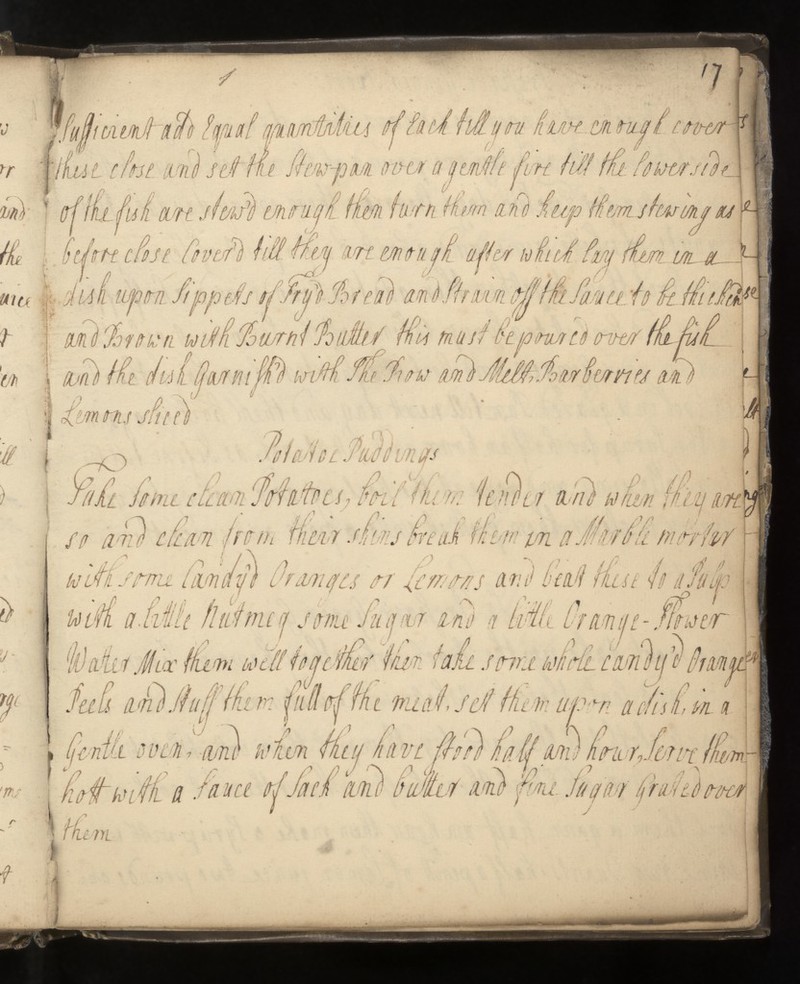 17
Sufficient add Equal quantities of Each till you have enough cover
these close and set the Stew-pan over a gentle fire till the lowerside
of the fish are stew'd enough then turn them and keep them stewing as
before close Cover'd till they are enough after which lay them in a
dish upon Sippets of Fry'd Bread and Strain off the Sauce to be thicken
and Brown with Burnt Butter this must be poured over the fish
and the dish Garnish'd with The Row and Melt, Barberries and
Lemons sliced
Potatoe Puddings
Take Some clean Potatoes, boil them tender and when they are
so and clean from their skins break them in a Marble morter
with some Candy'd Oranges or Lemons and beat these to a Pulp
with a little Nutmeg some Sugar and a little Orange-Flower
Water Mix them well together then take some whole candy'd Orange
Peels and Stuff them full of the meat, set them upon a dish, in a
Gentle oven, and when they have stood half and hour, Serve them
hott with a Sauce of Sack and butter and fine Sugar Grated over
them